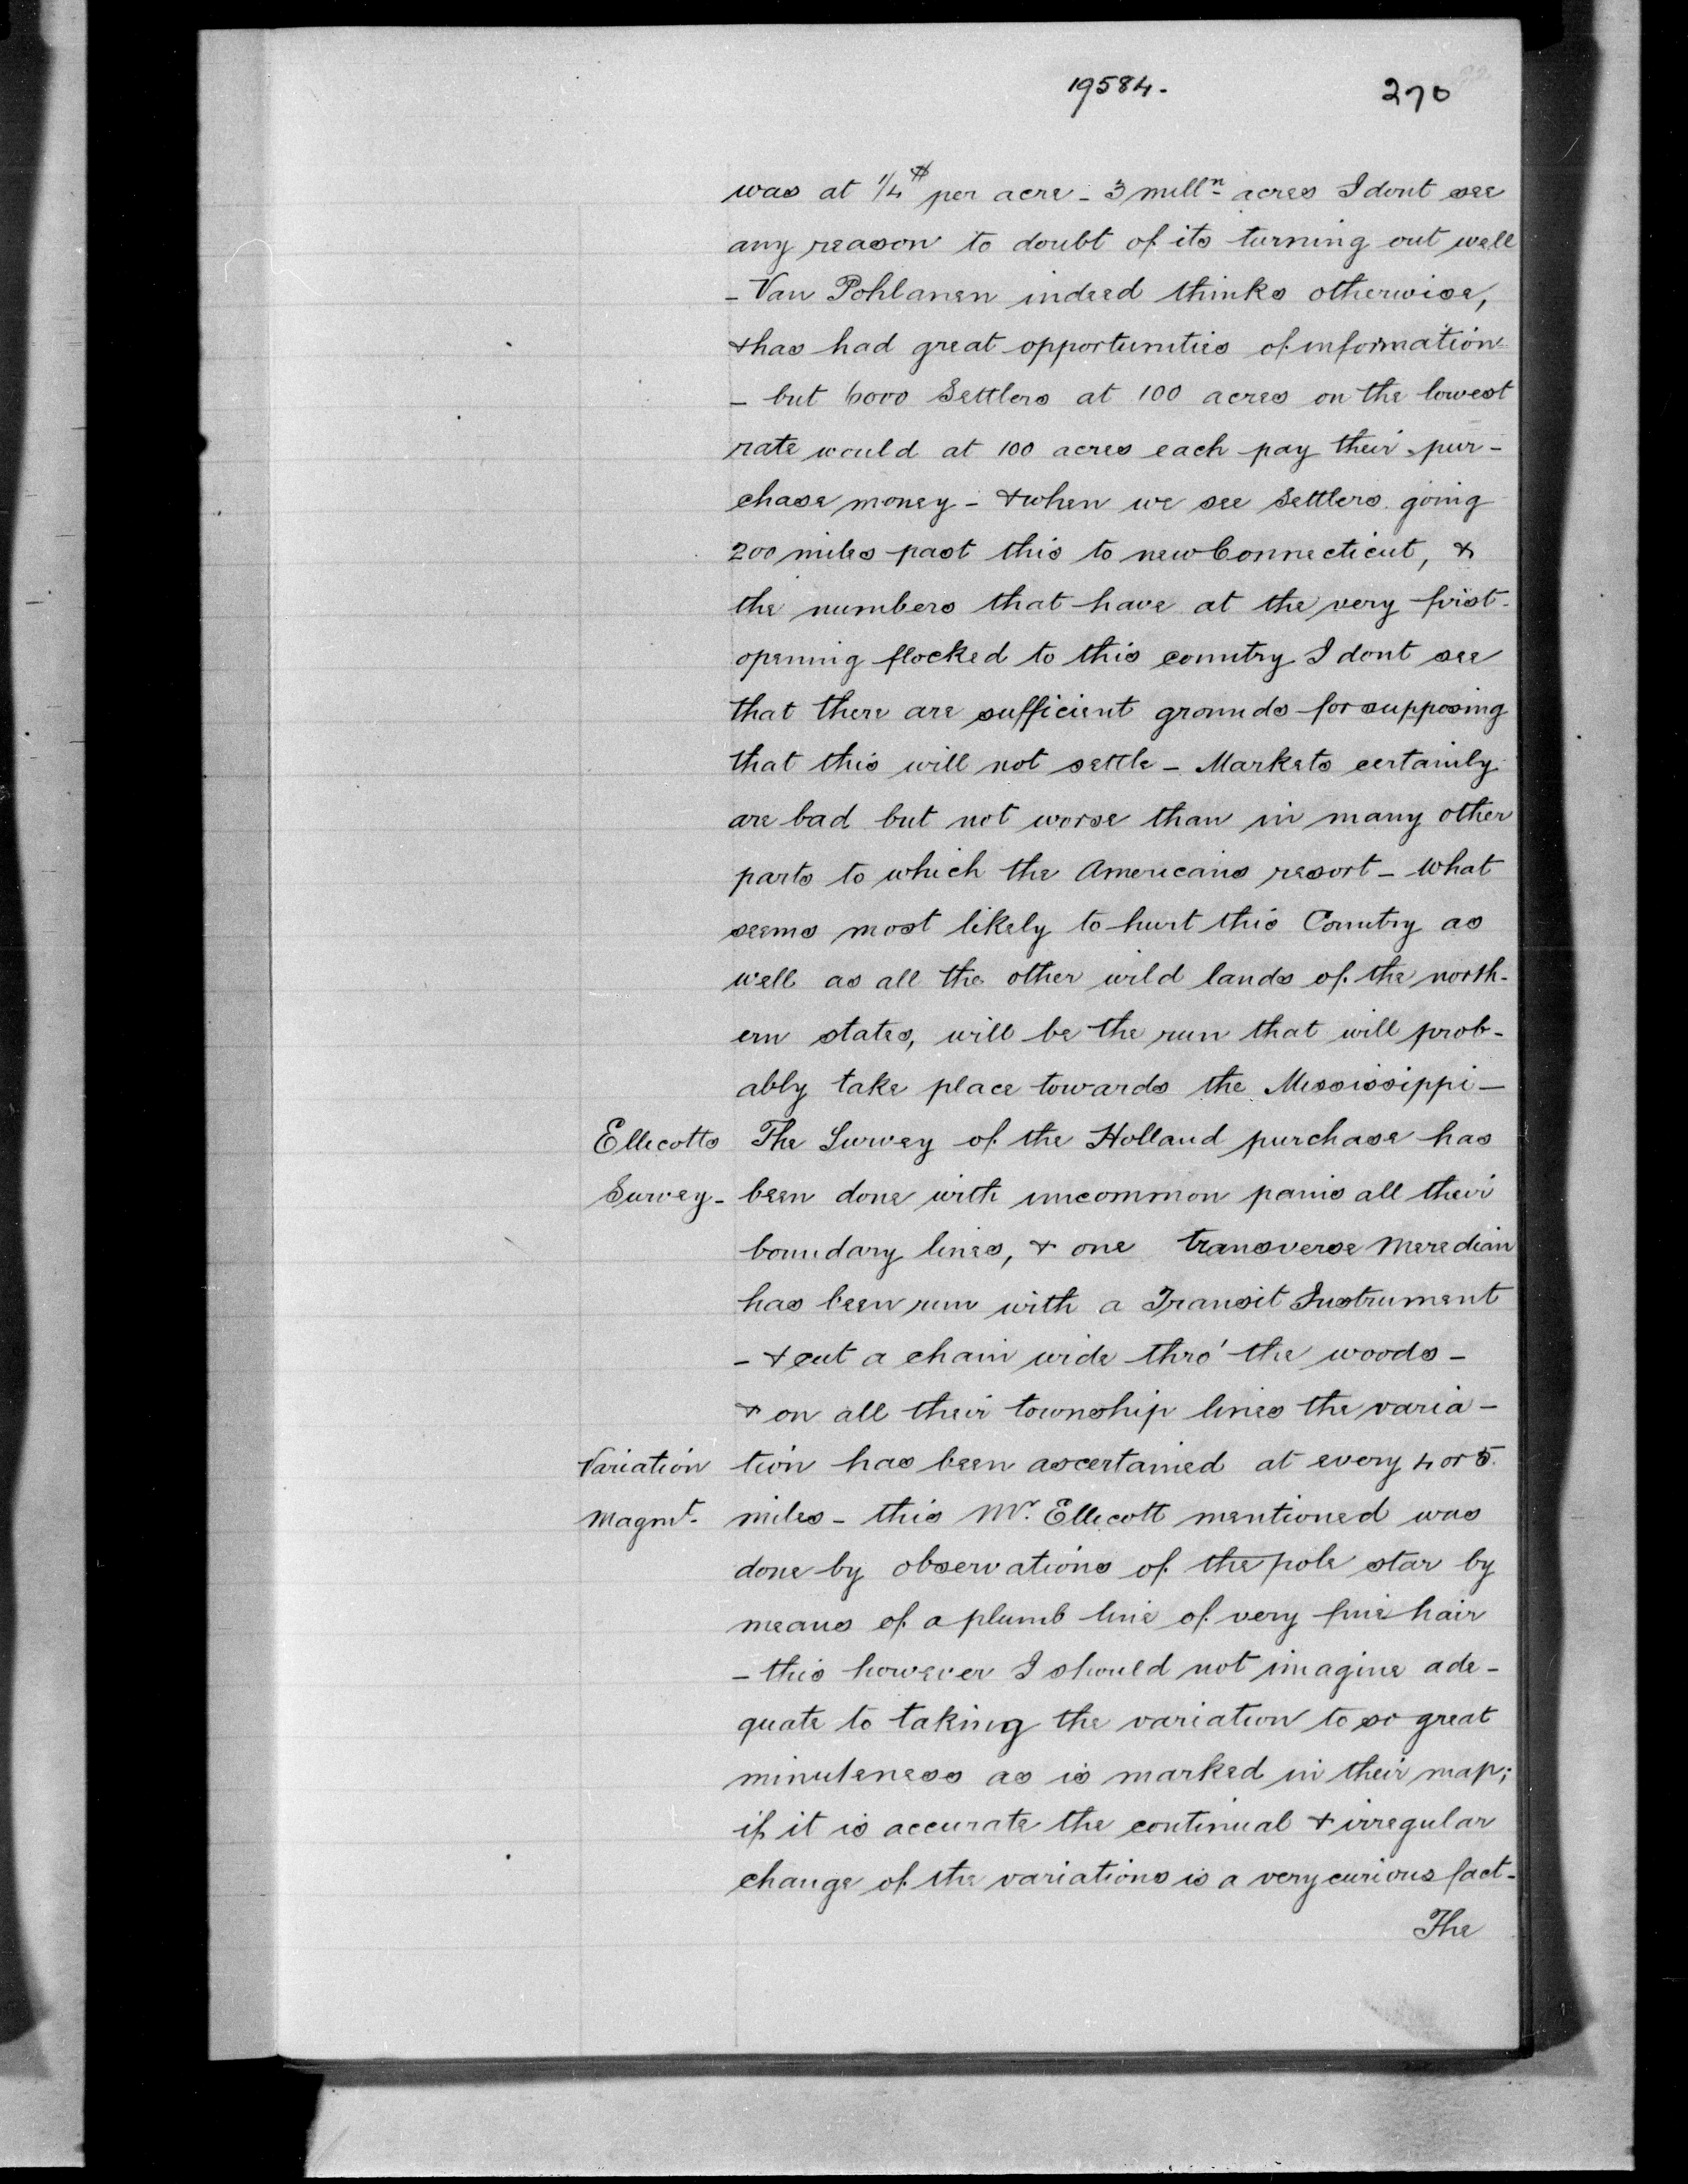 19584.
270
was at 1/4$ per acre - 3 mill^n acres I dont see
any reason to doubt of its turning out well
- Van Pohlanen indeed thinks otherwise,
& has had great opportunities of information
- but 6000 Settlers at 100 acres on the lowest
rate would at 100 acres each pay their pur-
chase money - & when we see Settlers going
200 miles past this to new Connecticut, &
the numbers that have at the very first
opening flocked to this country I dont see
that there are sufficient grounds for supposing
that this will not settle - Markets certainly
are bad but not worse than in many other
parts to which the Americans resort - what
seems most likely to hurt this Country as
well as all the other wild lands of the north-
ern states, will be the run that will prob-
ably take place towards the Mississippi -
Ellicotts The Survey of the Holland purchase has
Survey - been done with uncommon pains all their
boundary lines, & one transverse Meredian
has been run with a Transit Instrument
- & cut a chain wide thro' the woods -
& on all their township lines the varia-
Variation tion has been ascertained at every 4 or 5
Magnt. miles - this Mr. Ellicott mentioned was
done by observations of the pole star by
means of a plumb line of very fine hair
- this however I should not imagine ade-
quate to taking the variation to so great
minuteness as is marked in their map;
if it is accurate the continual & irregular
change of the variations is a very curious fact -
The